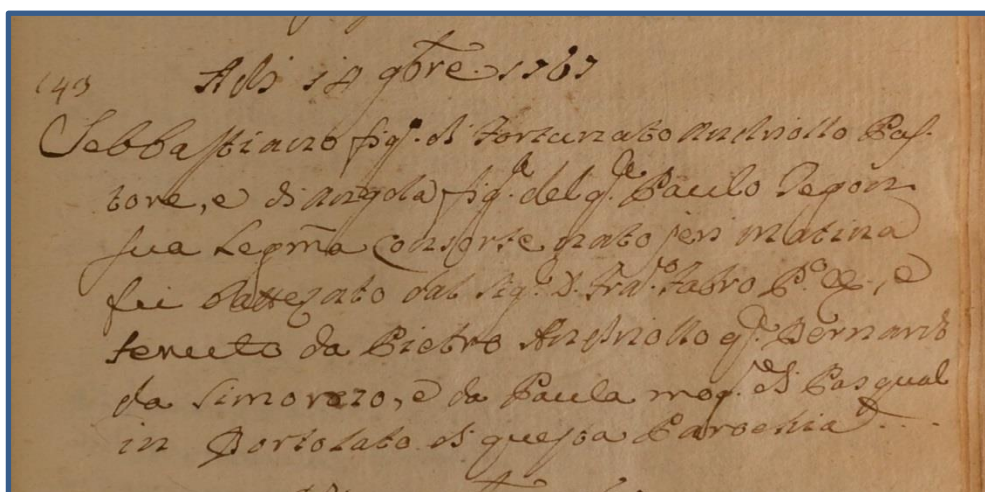 143
Adi 14 9bre 1767
Sebbastiano fig.º di Fortunato Andriollo Pas-
tore, e di Angola fig.ª del q.m Paulo Pegorin
sua Legma Consorte nato jeri matina
fu battezato dal Sig.r D. Fra.co Fabro P.º &, e
tenuto da Pietro Andriollo q.m Bernard
da Limoreno, e da Paula mog. di Pasqual
in Bortolato di questa Parochia